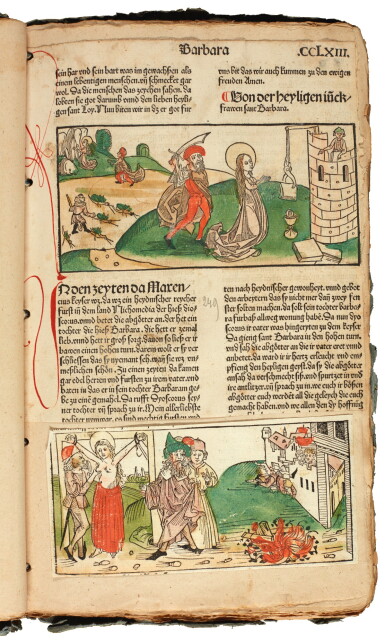 Barbara
.CCLXIII.
sein har vnd sein bart was im gewachsen als
einen lebentigen menschen. vñ schmecket gar
wol. Da die menschen das zeychen sahen. da
lobten sie got darumb vnd den lieben heyli
gen sant Loy. Nun biten wir in dz er got für
vns bit das wir auch kummen zu den ewigen
freuden Amen.
Von der heyligen iũck-
frawen sant Barbara.
N den zeyten da Maxen-
cius keyser wz. da wz ein heydnischer reycher
fürst in dem land Nichomedia der hieß Dio
scorus. vnnd betet die abgötter an. der het ein
tochter die hieß Barbara. die hett er zemal
lieb. vnnd hett ir groß sorg. dauon so ließ er ir
bawen einen hohen turn. darein wolt er sy ver
schliessen das sy nyemant sech. was sy wz vn-
menschlichen schön. Zu einen zeyten da kamen
gar edel herren vnd fürsten zu irem vater. vnd
baten in das er in sein tochter Barbaram ge-
be zu einē gemahel. Da rufft Dyoscorus sey-
ner tochter vñ sprach zu ir. Mein allerliebste
tochter
ten nach heydnischer gewonheyt. vnnd gebot
den arbeytern das sy nicht mer dañ zwey fen
ster solten machen. da solt sein tochter barba-
ra fürbaß allweg wonung habē. Da nun dyo
scorus ir vater was hingeryten zu dem keyser
Da gieng sant Barbara in den hohen turn.
vnd sah die abgötter an die ir vater eret vnnd
anbetet. da ward ir ir hertz erleucht vnd en-
pfieng den heyligen geyst. da sy die abgötter
ansah da verschmecht sy. vnd spurtzet in vnd
ir antlitz. vñ sprach zu in. we euch ir bösen
abgötter euch werdēt all die geleych die euch
gemacht haben. vnd we allen den dy hoffnūg
249